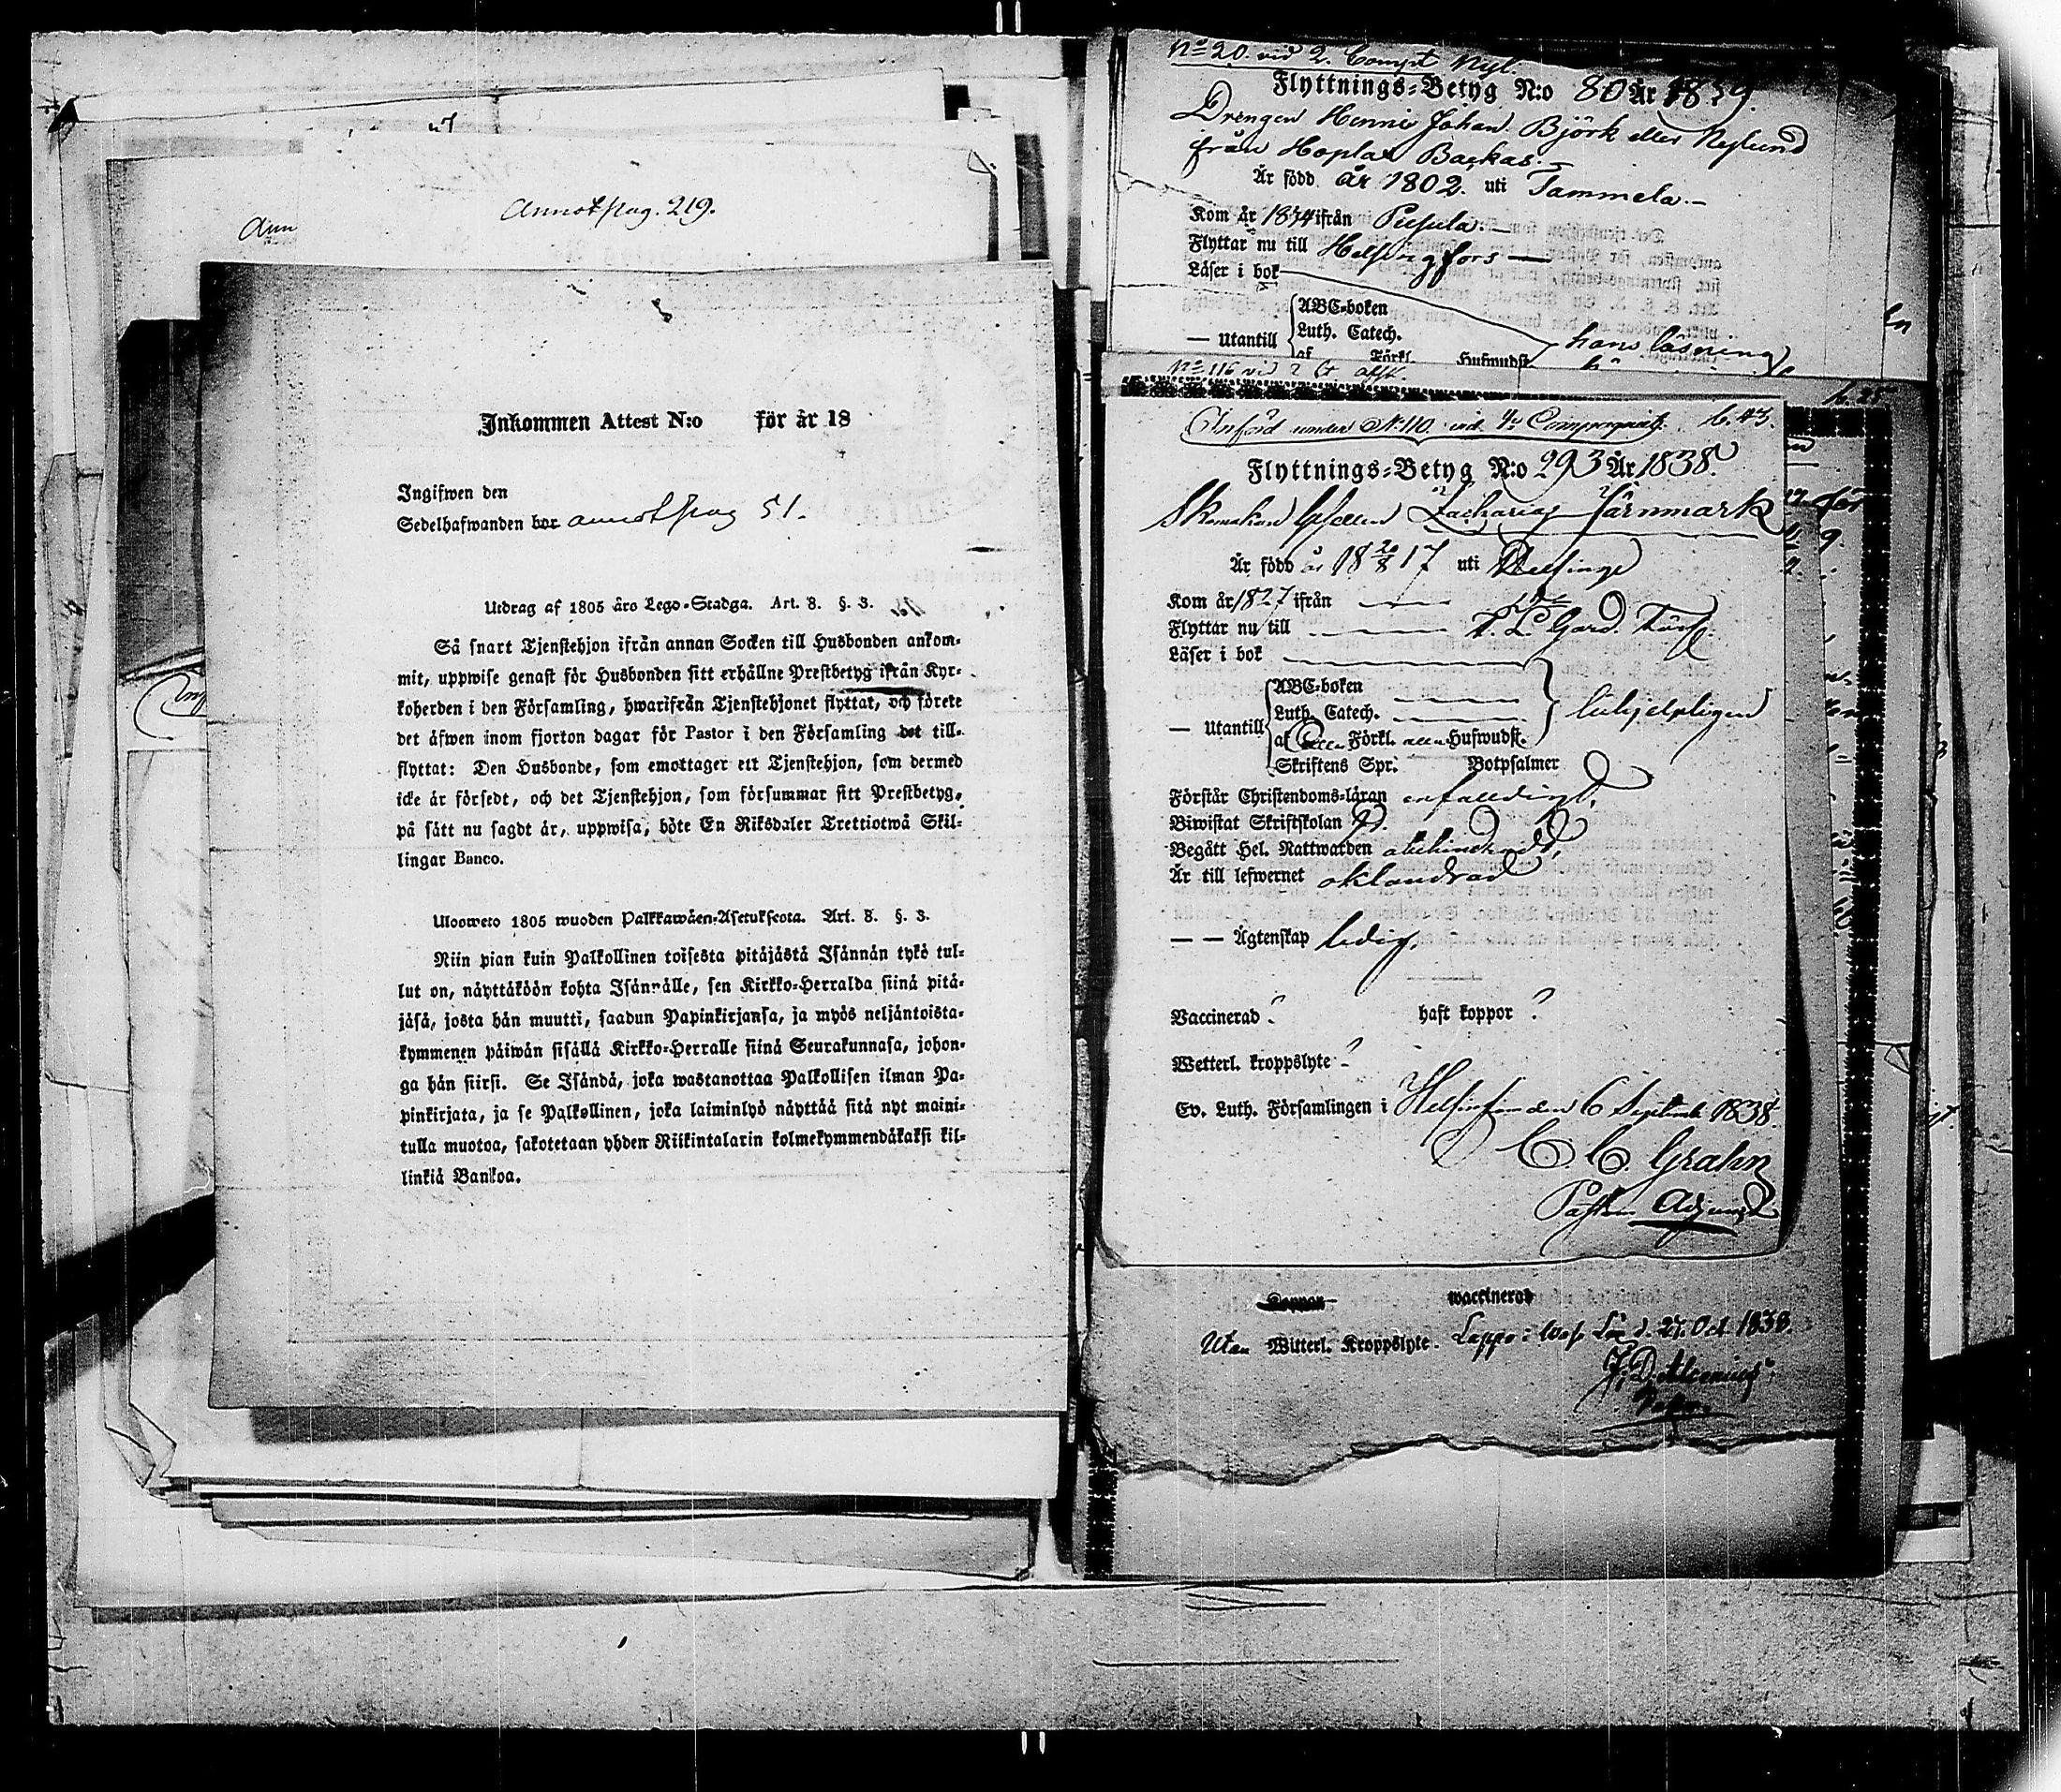 Annot pag. 219.
Ann
Inkommen Attest N:o för år 18
Ingifwen den
Sedelhafwanden bor annot pag 51.
Utdrag af 1805 års Lego-Stadga. Art. 8. §. 3.
Så snart Tjenstehjon ifrån annan Socken till Husbonden ankom-
mit, uppwise genast för Husbonden sitt erhållne Prestbetyg ifrån Kyr-
koherden i den Församling, hwarifrån Tjenstehjonet flyttat, och förete
det äfwen inom fjorton dagar för Pastor i den Församling det till-
flyttat: Den Husbonde, som emottager ett Tjenstehjon, som dermed
icke är försedt, och det Tjenstehjon, som försummar sitt Prestbetyg,
på sätt nu sagdt är, uppwisa, böte En Riksdaler Trettiotwå Skil-
lingar Banco.
Uloosweto 1805 wuoden Palkkawäen-Asetuksesta. Art. 8. §. 3.
Niin pian kuin Palkollinen toisesta pitäjästä Isännän tykö tul-
lut on, näyttäköön kohta Isännälle, sen Kirkko-Herralda siinä pitä-
jäsä, josta hän muutti, saadun Papinkirjansa, ja myös neljäntoista-
kymmenen päiwän sisällä Kirkko-Herralle siinä Seurakunnasa, johon-
ga hän siirsi. Se Isändä, joka wastanottaa Palkollisen ilman Pa-
pinkirjata, ja se Palkollinen, joka laiminlyö näyttää sitä nyt maini-
tulla muotoa, sakotetaan yhden Riikintalarin kolmekymmendäkaksi kil-
linkiä Bankoa.
No 20. vid 2. Compt Nyl.
Flyttnings-Betyg N:o 80 År 1839.
Drengen Henric Johan Björk eller Nylund
från Hoplax Backas.
Är född år 1802. uti Tammela.
Kom år 1834 ifrån Pusula.
Flyttar nu till Helsingfors
Läser i bok
ABC-boken
Luth. Catech.
— Utantill
af Förkl. Hufwudst.
hans läsning
No 116 vid 2
Införd under No 110. vid 4de Compagniet. b. 43.
Flyttnings-Betyg N:o 293 År 1838.
Skomakare Gesellen Zacharias Järnmark
Är född år 18 20/8 17 uti Helsinge
Kom år 1827 ifrån
Flyttar nu till F. L. Gard.
Läser i bok
ABC-boken
Luth. Catech.
— Utantill
af Förkl. Hufwudst.
Skriftens Spr. Botpsalmer
Förstår Christendoms-läran enfaldigt.
Biwistat Skriftskolan
Begått Hel. Nattwarden obehindradt,
Är till lefwernet oklandrad
— — Ägtenskap ledig.
Vaccinerad ? haft koppor ?
Wetterl. kroppslyte ?
Ev. Luth. Församlingen i Helsinge den 6 Septemb 1838.
C. C. Grahn
Pastors Adjunct
Koppor waccinerad
Utan Witterl. Kroppslyte. Lappo i Wasa Län d. 27. Oct 1838.